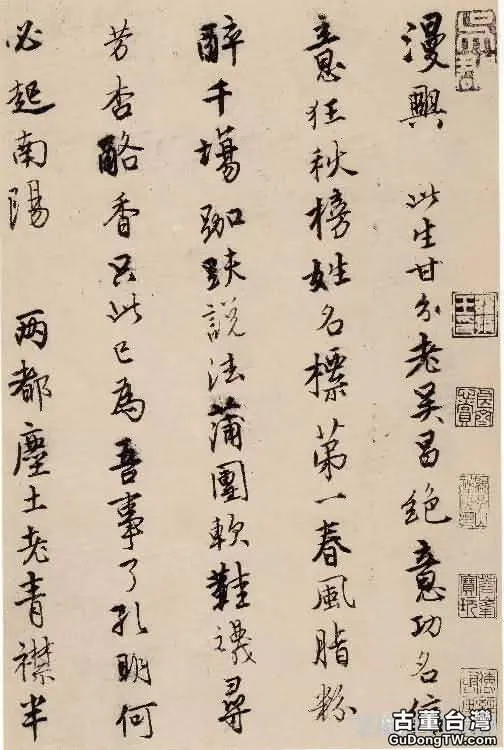 漫興 此生甘分老吳昌絕意功名信
意狂秋榜姓名標第一春風脂粉
醉千場跏趺說法蒲團軟鞋襪尋
芳杏酪香只此已為吾事了孔明何
必起南陽 兩都塵土老青襟半
古董台灣
GuDongTW.com